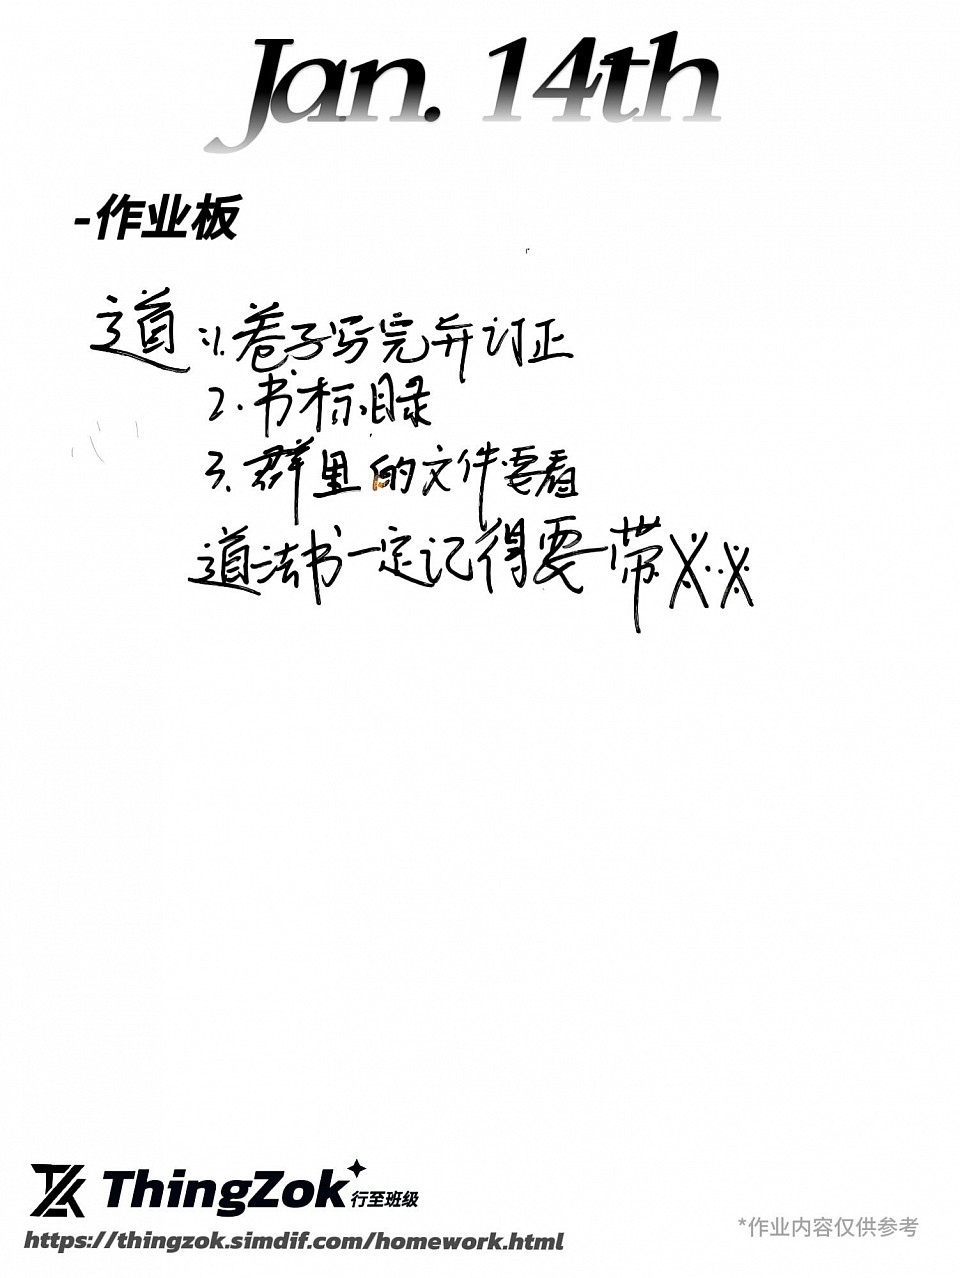 Jan. 14th
-作业板
道:1.卷子写完并订正
2.书标目录
3.群里的文件要看
道法书一定记得要带※※
ThingZok 行至班级
https://thingzok.simdif.com/homework.html
*作业内容仅供参考